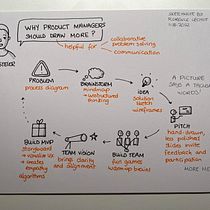 SKETCHNOTE BY
WHY PRODUCT MANAGERS
SHOULD DRAW MORE?
helpful for
collaborative
problem solving
communication
PROBLEM
process diagram
BRAINSTORM
mindmap
unstructured
thinking
IDEA
solution
sketch
wireframes
A PICTURE
WORDS!
PITCH
hand-drawn,
less polished
slides invite
feedback and
participation
BUILD TEAM
fun games
warmup brains!
TEAM VISION
bring clarity
and alignment
BUILD MVP
storyboard
→ visualize UX
→ creates
empathy
algorithms
MORE